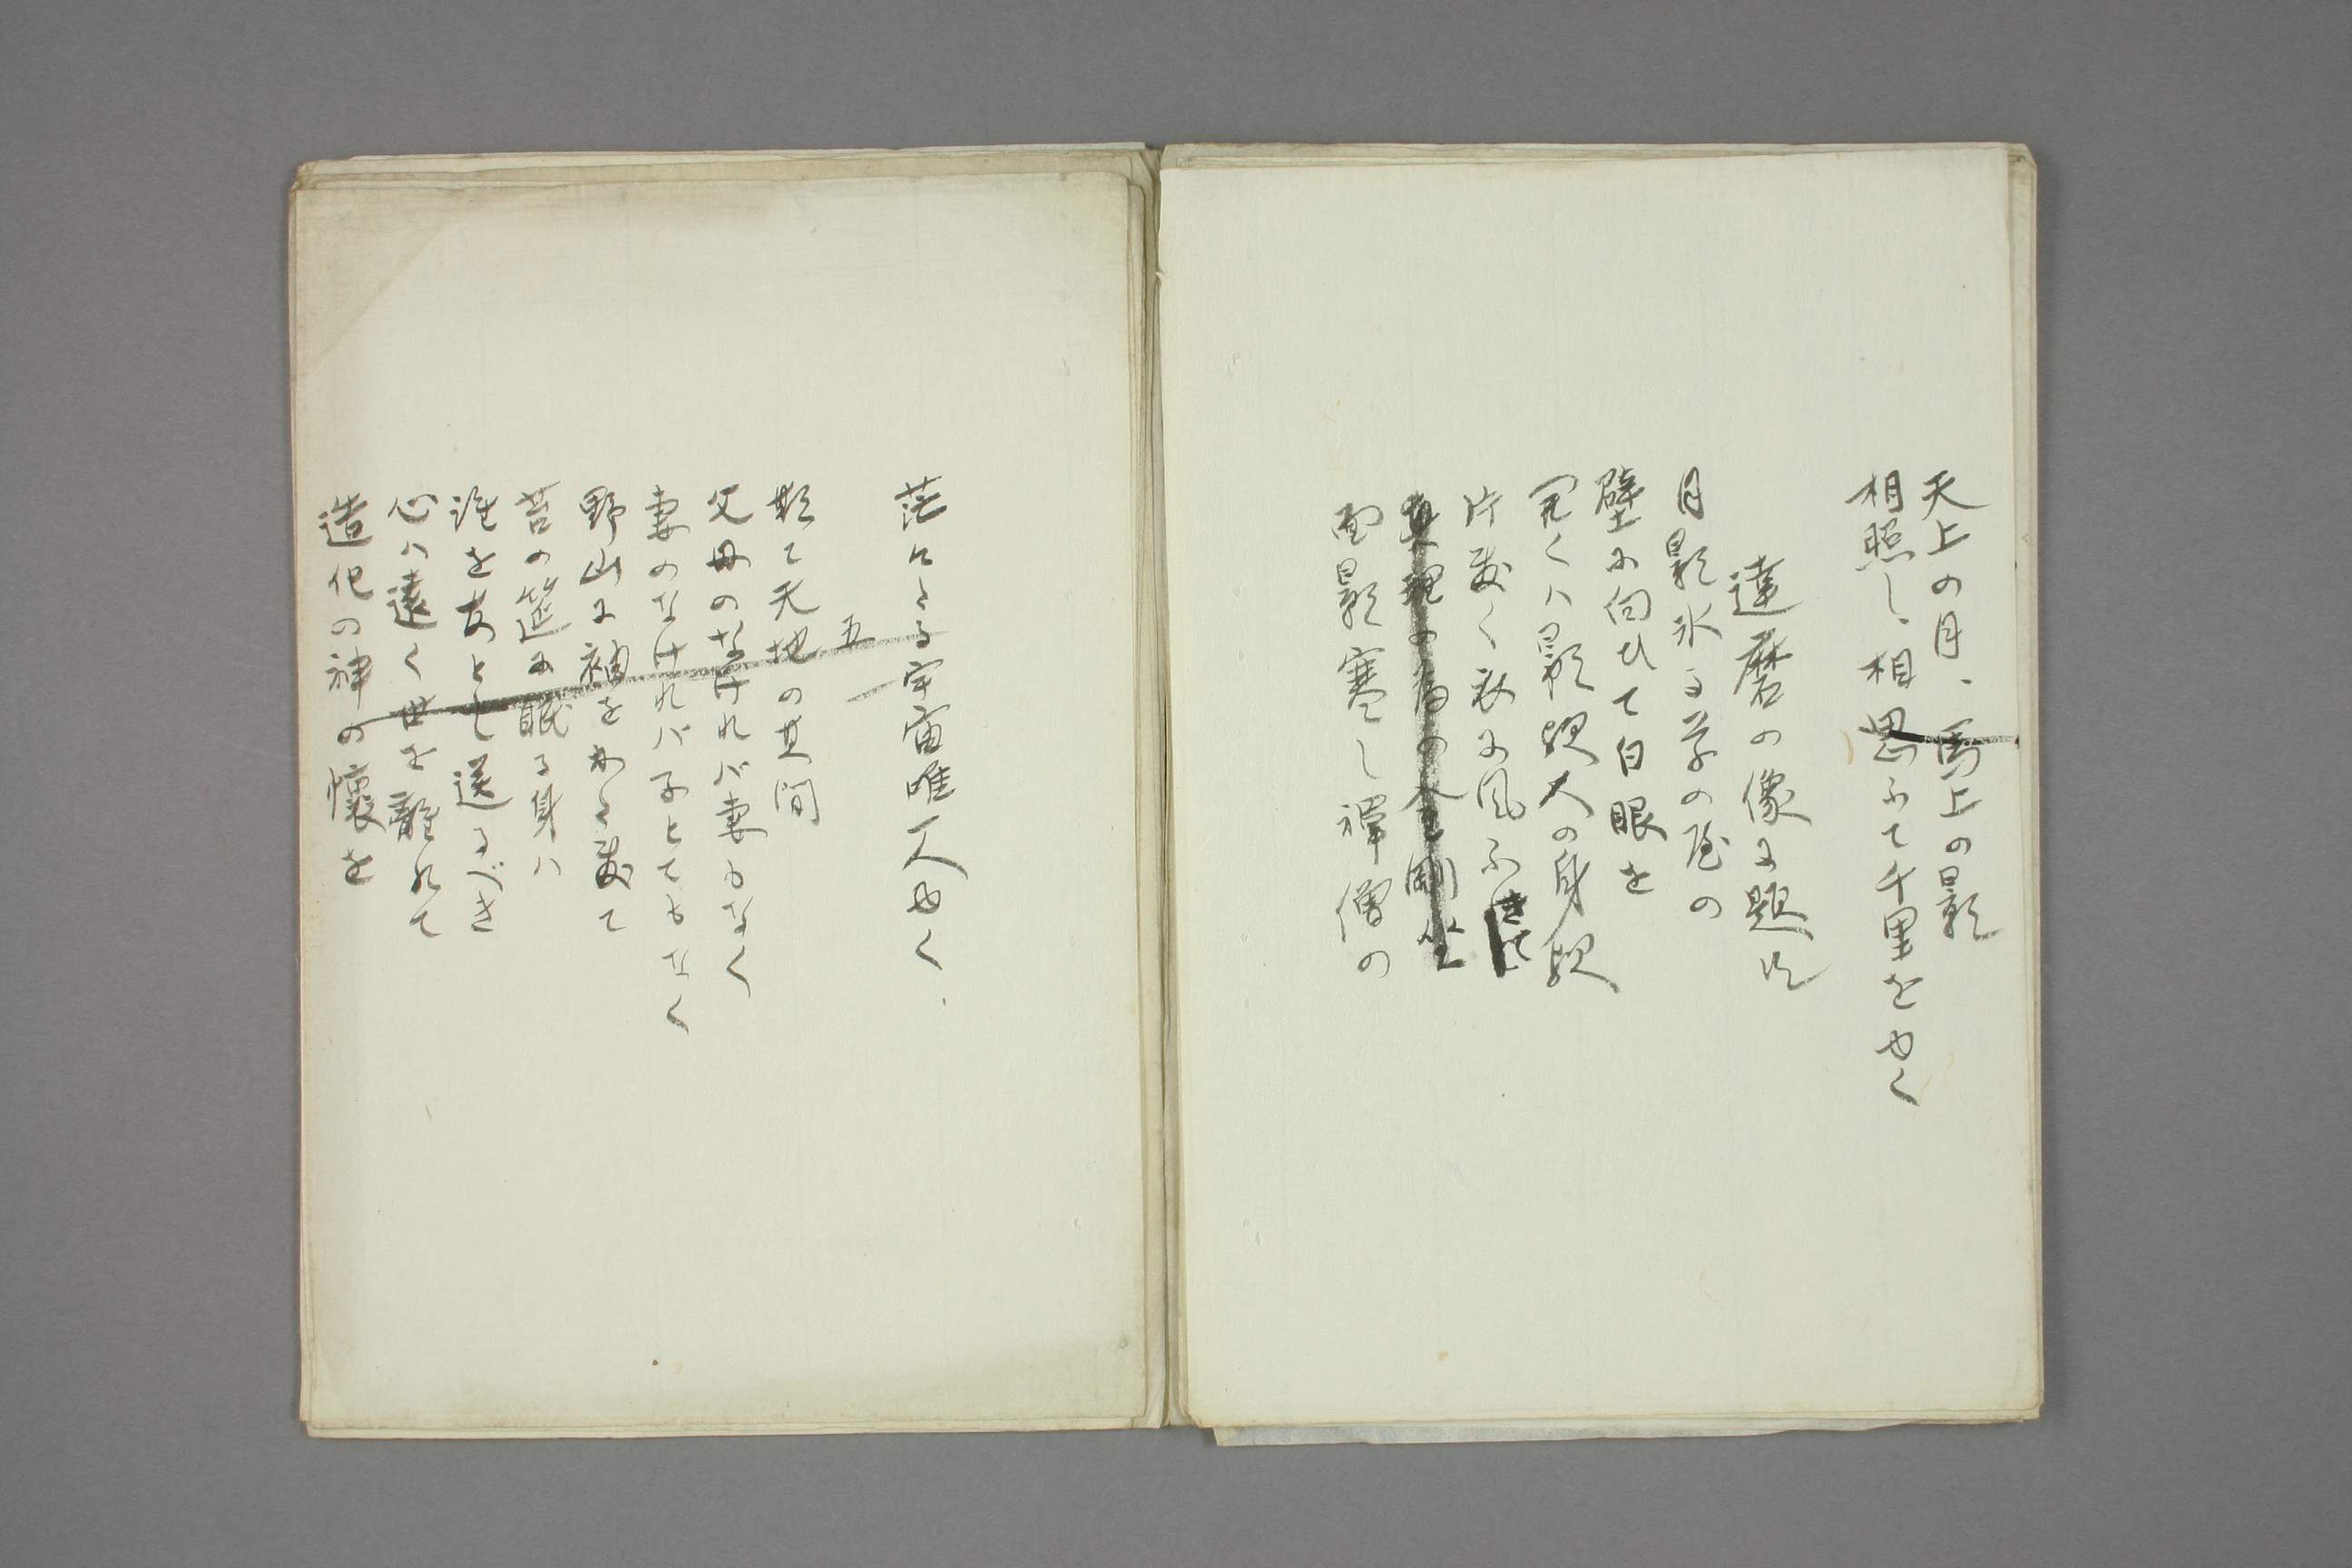 天上の月、馬上の影
相照し、相思ふて千里をゆく
達磨の像に題す
月影氷る草の屋の
壁に向ひて白眼を
開くハ影歟人の身歟
片敷く衣に風ふ
面影寒し禅僧の
茫々たる宇宙唯一人ゆく、
五
頼む天地の其間
父母のなけれバ妻もなく
妻のなけれバ子とてもなく
野山に袖をかた敷て
苔の筵に眠る身ハ
誰を友とし送るべき
心ハ遠く世を離れて
造化の神の懐を